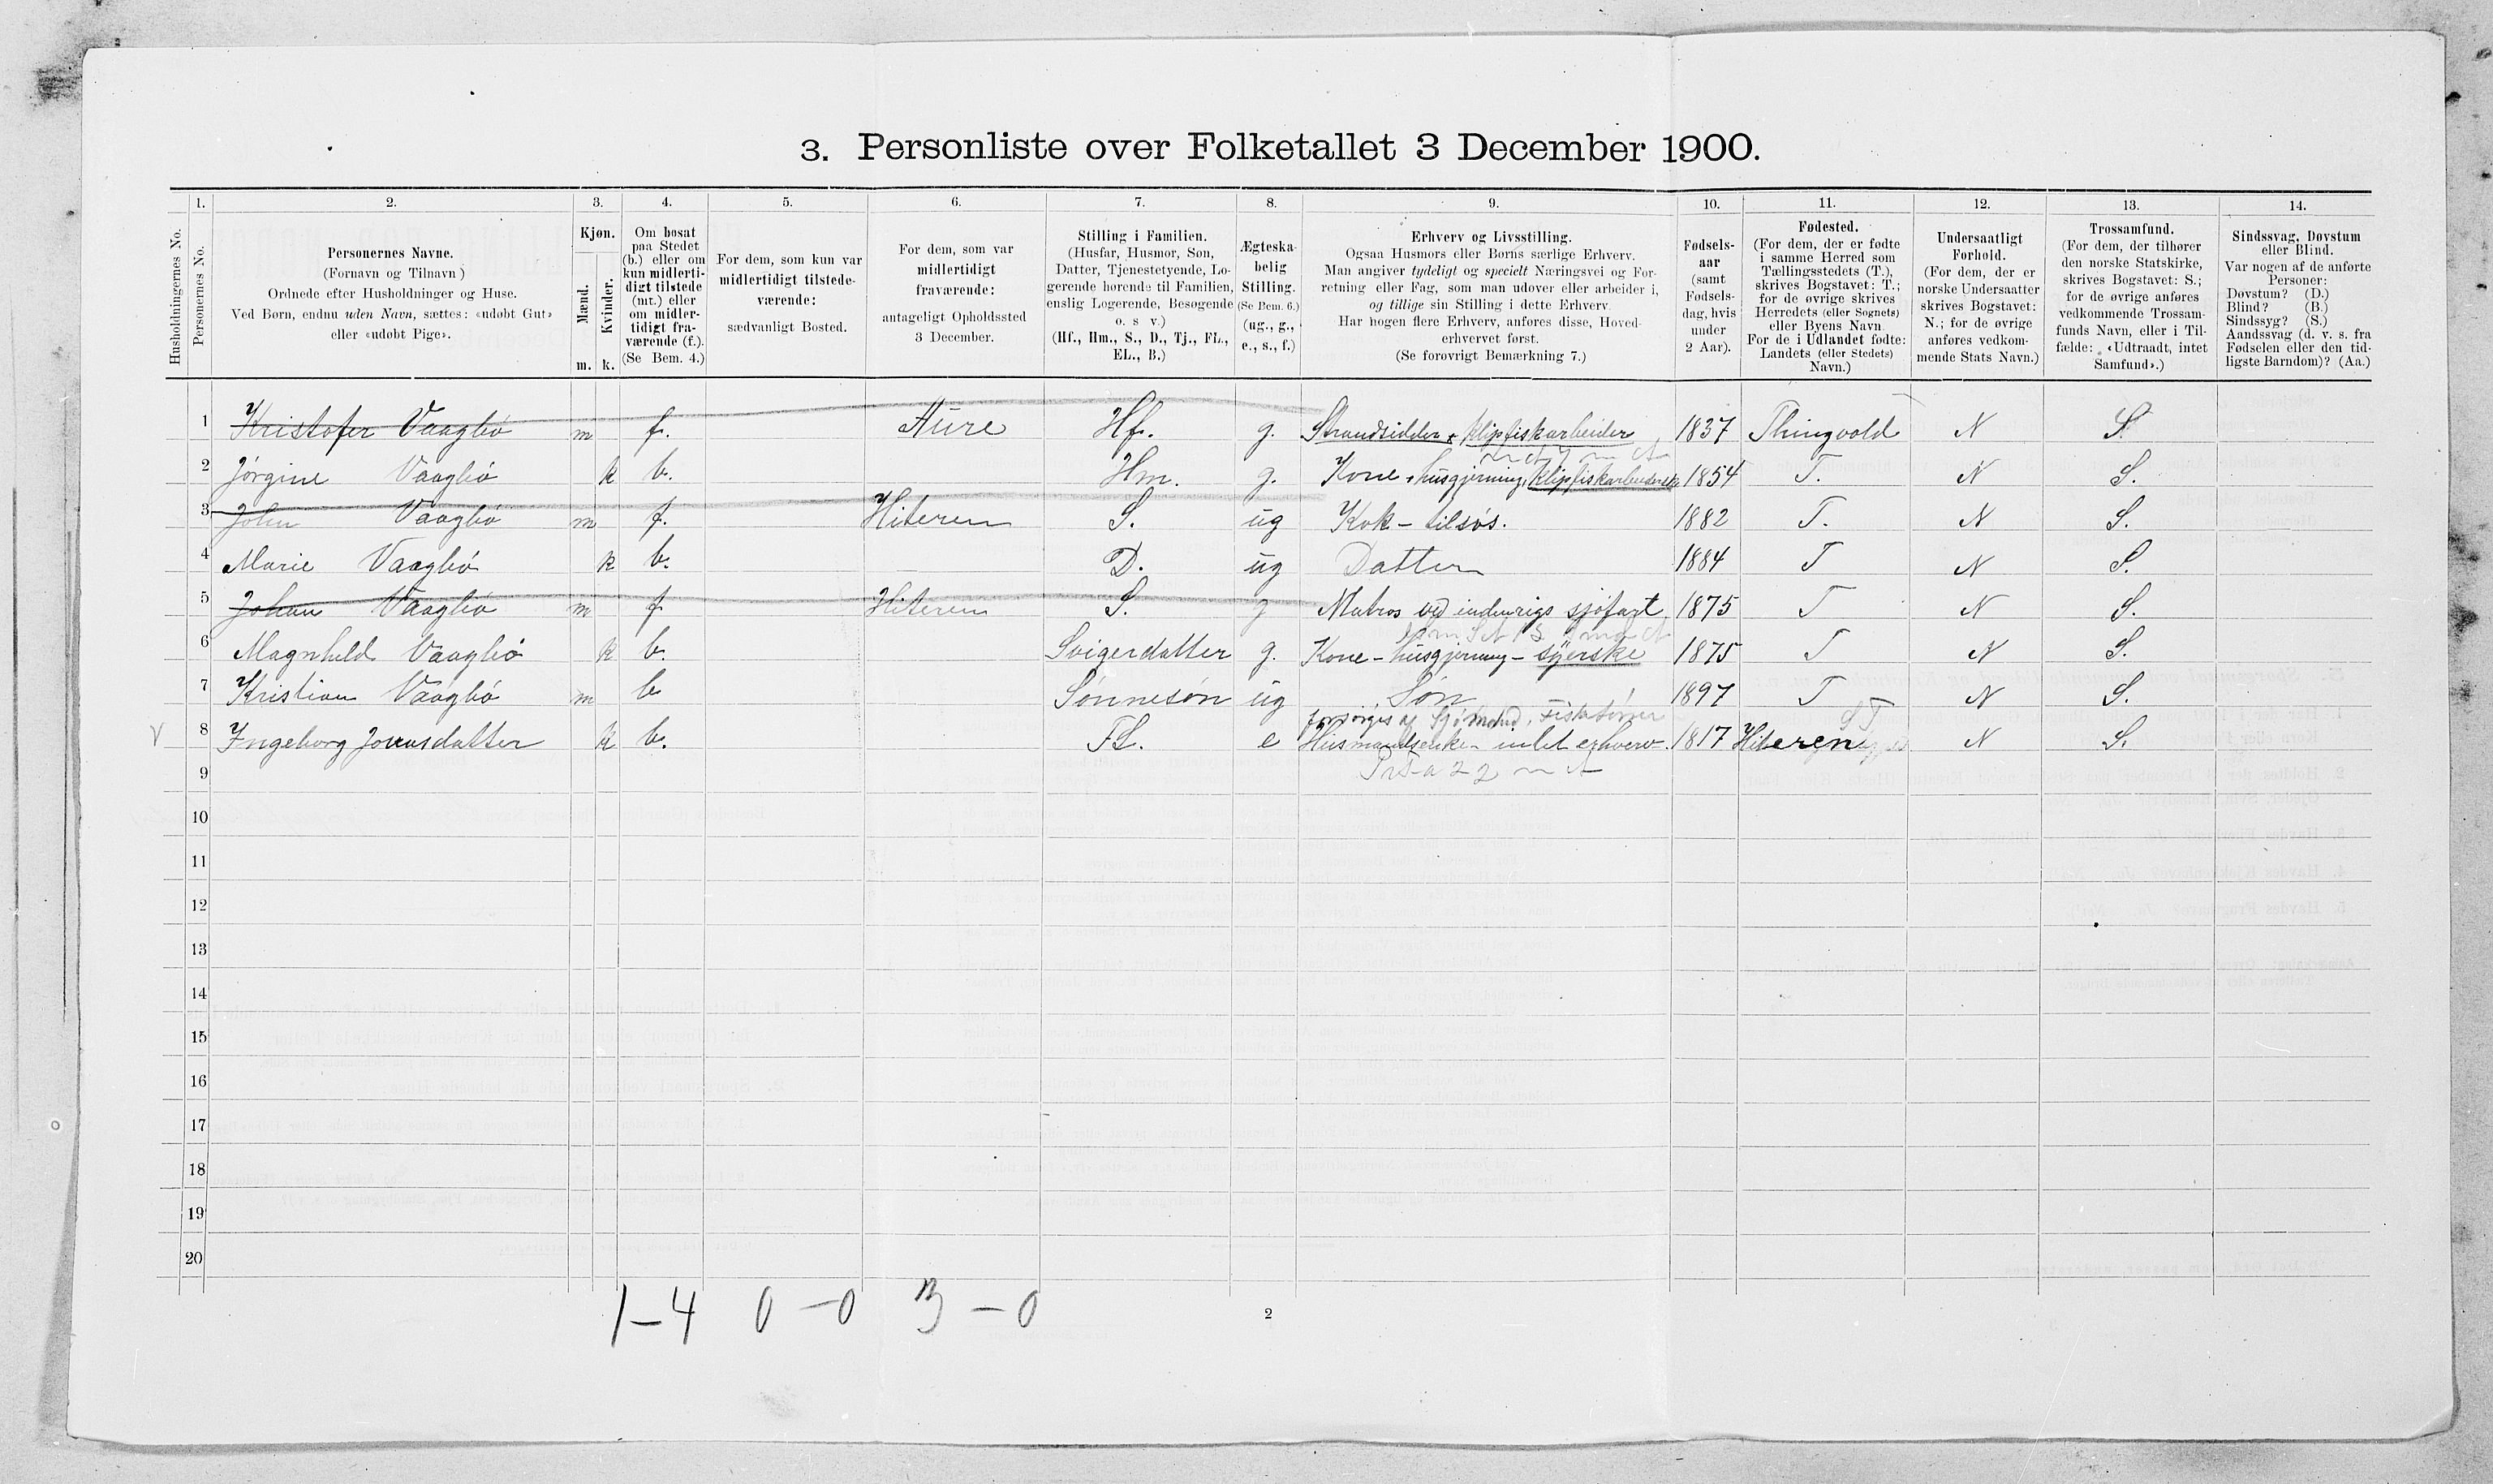 3. Personliste over Folketallet 3 December 1900.
1. 2. 3. 4. 5. 6. 7. 8. 9. 10. 11. 12. 13. 14.
Husholdningernes No.
Personernes No.
Personernes Navne.
(Fornavn og Tilnavn)
Ordnede efter Husholdninger og Huse.
Ved Børn, endnu uden Navn, sættes: «udøbt Gut»
eller «udøbt Pige».
Kjøn.
Mænd.
Kvinder.
m. k.
Om bosat
paa Stedet
(b.) eller om
kun midlerti-
digt tilstede
(mt.) eller
om midler-
tidigt fra-
værende (f.).
(Se Bem. 4.)
For dem, som kun var
midlertidigt tilstede-
værende:
sædvanligt Bosted.
For dem, som var
midlertidigt
fraværende:
antageligt Opholdssted
3 December.
Stilling i Familien.
(Husfar, Husmor, Søn,
Datter, Tjenestetyende, Lo-
gerende hørende til Familien,
enslig Logerende, Besøgende
o. s v.)
(Hf., Hm., S., D., Tj., FL.,
EL., B.)
Ægteska-
belig
Stilling.
(Se Bem. 6.)
(ug., g.,
e., s., f.)
Erhverv og Livsstilling.
Ogsaa Husmors eller Børns særlige Erhverv.
Man angiver tydeligt og specielt Næringsvei og For-
retning eller Fag, som man udøver eller arbeider i,
og tillige sin Stilling i dette Erhverv.
Har nogen flere Erhverv, anføres disse, Hoved-
erhvervet først.
(Se forøvrigt Bemærkning 7.)
Fødsels-
aar
(samt
Fødsels-
dag, hvis
under
2 Aar).
Fødested.
(For dem, der er fødte
i samme Herred som
Tællingsstedets (T.),
skrives Bogstavet: T.;
for de øvrige skrives
Herredets (eller Sognets)
eller Byens Navn.
For de i Udlandet fødte:
Landets (eller Stedets)
Navn.)
Undersaatligt
Forhold.
(For dem, der er
norske Undersaatter
skrives Bogstavet:
N.; for de øvrige
anføres vedkom-
mende Stats Navn.)
Trossamfund.
(For dem, der tilhører
den norske Statskirke,
skrives Bogstavet: S.;
for de øvrige anføres
vedkommende Trossam-
funds Navn, eller i Til-
fælde: «Udtraadt, intet
Samfund».)
Sindssvag, Døvstum
eller Blind.
Var nogen af de anførte
Personer:
Døvstum? (D.)
Blind? (B.)
Sindssyg? (S.)
Aandssvag (d. v. s. fra
Fødselen eller den tid-
ligste Barndom)? (Aa.)
1 Kristofer Vaagbö m f. Aure Hf. g. Strandsidder + klipfiskarbeider 1837 Thingvold N S
2 Jörgine Vaagbö k b. Hm. g. Kone + husgjerning, klipfiskarbeiderske 1854 T. N S.
3 John Vaagbö m f. Hiteren S. ug Kok - tilsös. 1882 T. N S.
4 Marie Vaagbö k b. D. ug Datter 1884 T N S.
5 Johan Vaagbö m f Hiteren S. g Matros ved indenrigs sjöfart 1875 T N S.
6 Magnhild Vaagbö k b. Svigerdatter g. Kone - husgjerning - syerske 1875 T N S.
7 Kristian Vaagbö m b Sönnesön ug Sön 1897 T N S.
forsörges af Sjömand, Fisketörrer
8 Ingeborg Jonasdatter k b. FL. e Husmandsenke - intet erhverv. 1817 Hiteren N S.
9
10
11
12
13
14
15
16
17
18
19
20
1 - 4 0 - 0 3 - 0
2